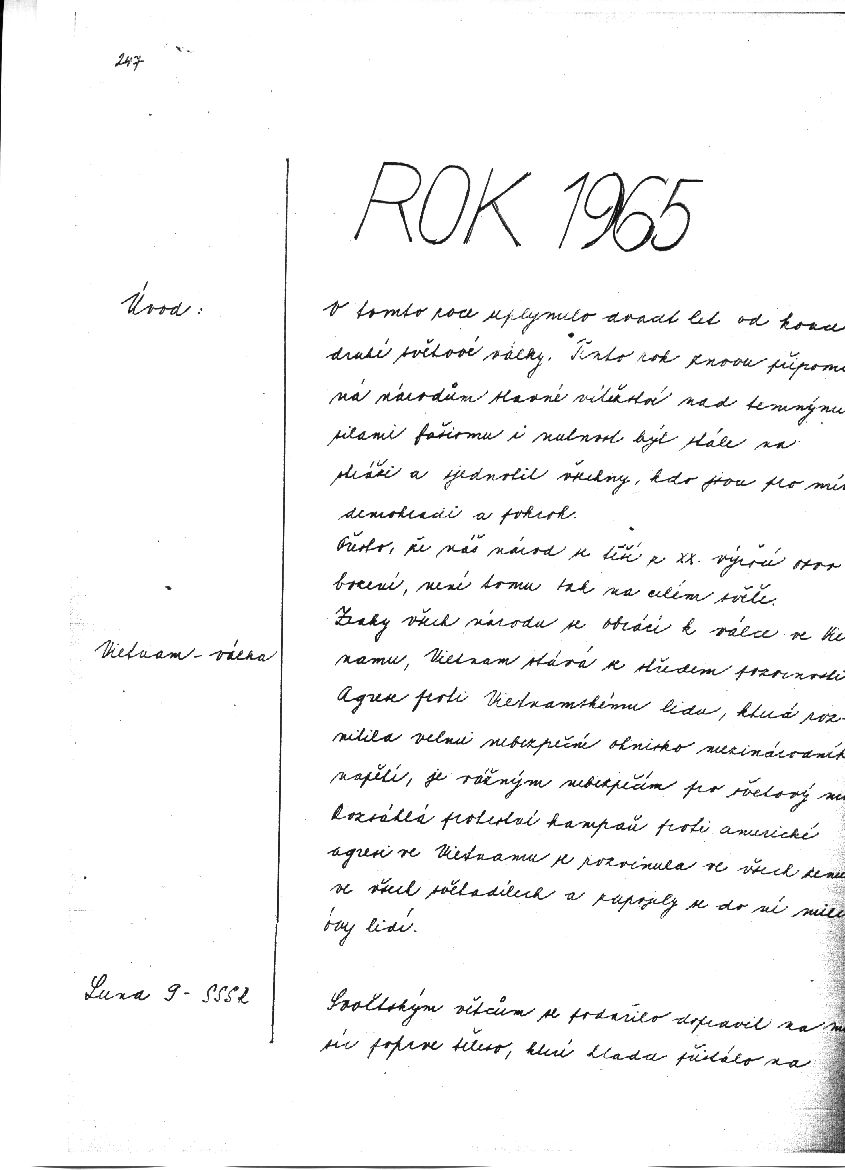 247
ROK 1965
Úvod:
V tomto roce uplynulo dvacet let od konce
druhé světové války. Tento rok znovu připomí
ná národům slavné vítězství nad temnými
silami fašismu i nutnost být stále na
stráži a sjednotit všechny, kdo jsou pro mír
demokracii a pokrok.
Přesto, že náš národ se těší z XX. výročí osvo
bození, není tomu tak na celém světě.
Zraky všech národu se obrací k válce ve Vie
Vietnam - válka
namu, Vietnam stává se středem pozornosti
Agrese proti Vietnamskému lidu, která roz-
nítila velmi nebezpečné ohnisko mezinárodníh
napětí, je vážným nebezpečím pro světový mí
Rozsáhlá protestní kampaň proti americké
agresi ve Vietnamu se rozvinula ve všech zemí
ve všech světadílech a zapojily se do ní mili
óny lidí.
Luna 9 - SSSR
Sovětským vědcům se podařilo dopravit na mě
síc poprve těleso, které hladce přistálo na